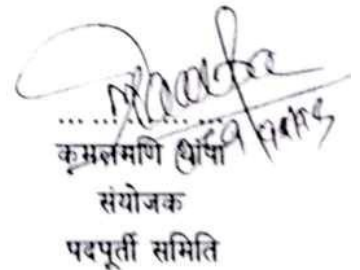 ..............
कमलमणि थापा
संयोजक
पदपूर्ती समिति